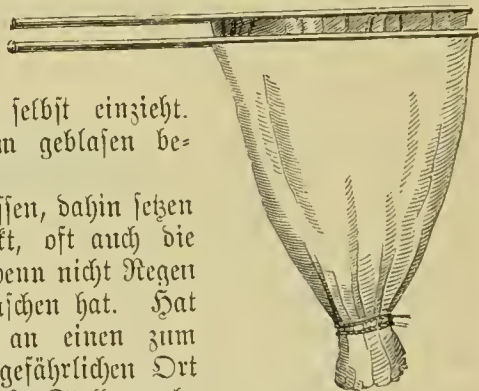 ſelbſt einzieht.
geblaſen be⸗
ſſen, dahin ſetzen
kt, oft auch die
wenn nicht Regen
ſchen hat. Hat
an einen zum
gefährlichen Ort